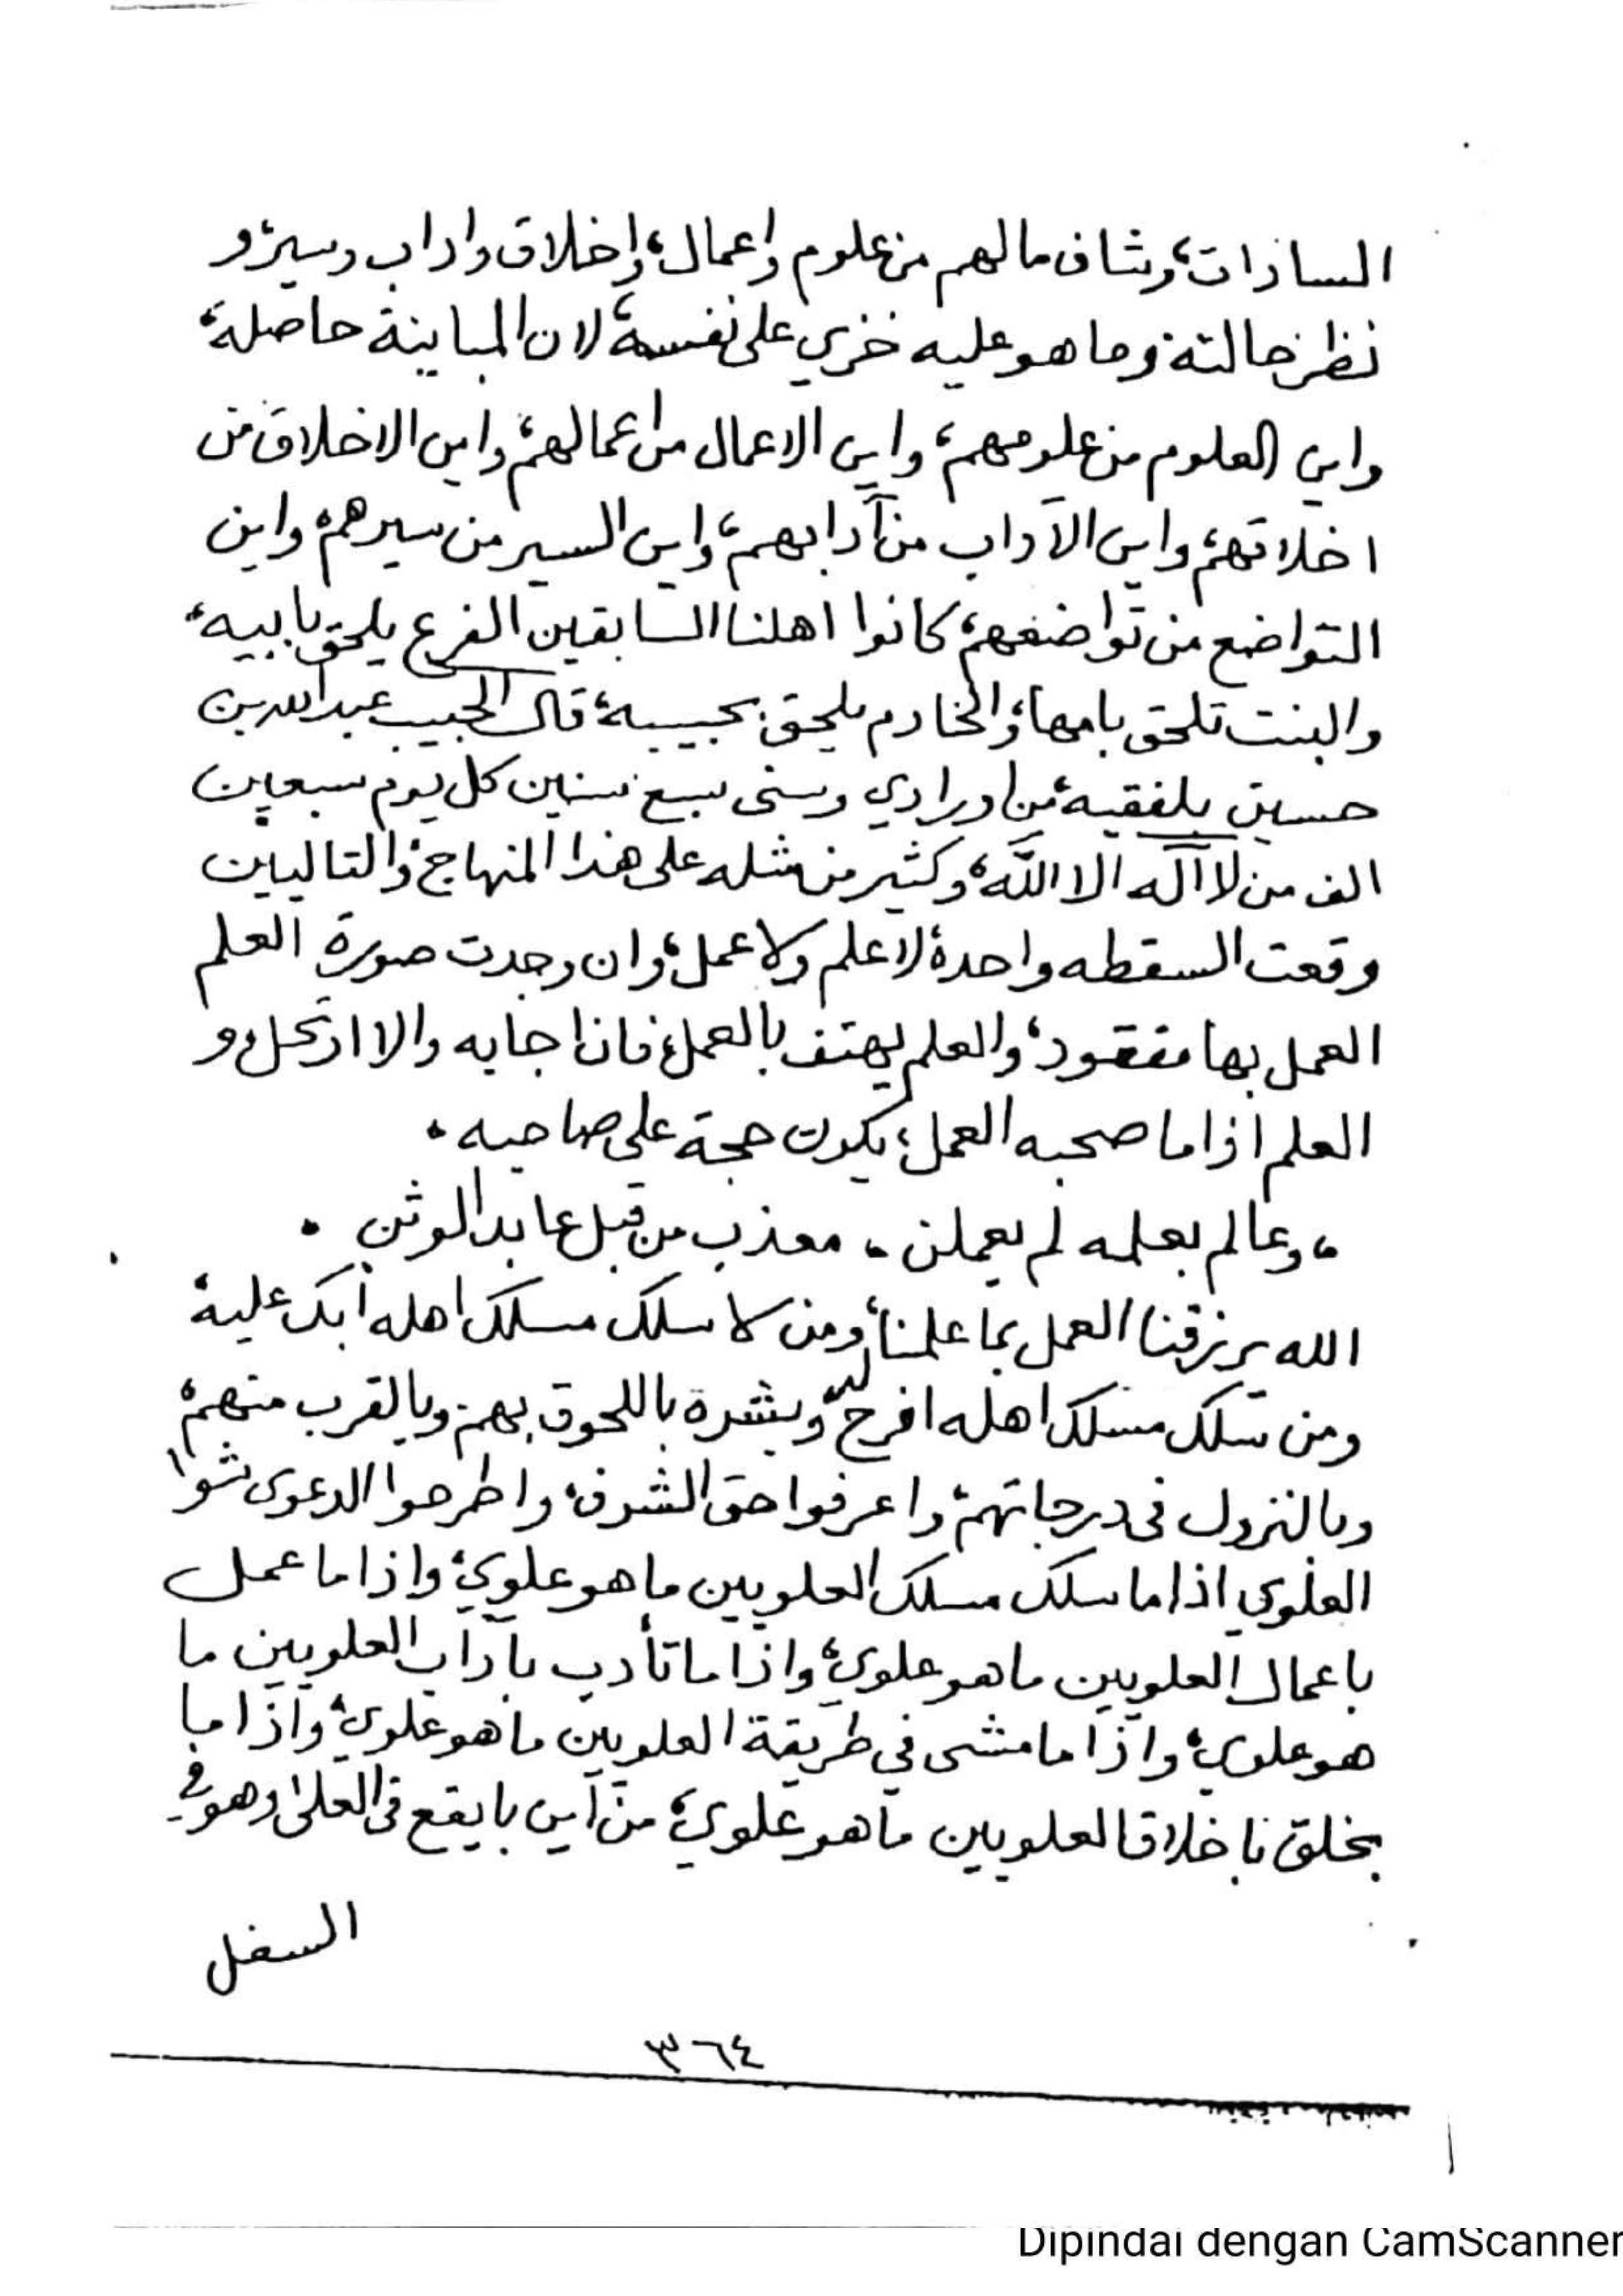 السادات، وشاف مالهم من علوم واعمال، واخلاق واداب وسير، و
نظر حالته وما هو عليه خزي على نفسه، لان المباينة حاصلة،
واين العلوم من علومهم، واين الاعمال من اعمالهم، واين الاخلاق من
اخلاقهم، واين الآداب من آدابهم، واين السير من سيرهم، واين
التواضع من تواضعهم، كانوا اهلنا السابقين الفرع يلحق بابيه،
والبنت تلحق بامها، والخادم يلحق بحبيبه، قال الحبيب عبدالله بن
حسين بلفقيه، من اورادي وسنى سبع سنين كل يوم سبعين
الف من لا آله الا الله، وكثير من مثله على هذا المنهاج، والتاليين
وقعت السقطه واحدة، لا علم ولا عمل، وان وجدت صورة العلم
العمل بها مفقود، والعلم يهتف بالعمل، فان اجابه والا ارتحل، و
العلم اذا ما صحبه العمل، يكون حجة على صاحبه .
، وعالم بعلمه لم يعملن . معذب من قبل عابد الوثن .
الله يرزقنا العمل بما علمنا، ومن لا سلك مسلك اهله أبك عليه،
ومن سلك مسلك اهله افرح له، وبشره باللحوق بهم وبالقرب منهم،
وبالنزول في درجاتهم، واعرفوا حق الشرف، واطرحوا الدعوى شوا
العلوي اذا ما سلك مسلك العلويين ما هو علوي، واذا ما عمل
باعمال العلويين ما هو علوي، واذا ما تأدب بآداب العلويين ما
هو علوي، واذا ما مشى في طريقة العلويين ما هو علوي، واذا ما
بخلق باخلاق العلويين ما هو علوي، من أين با يقع في العلى، وهو في
السفل
٣٦٤
Dipindai dengan CamScanner